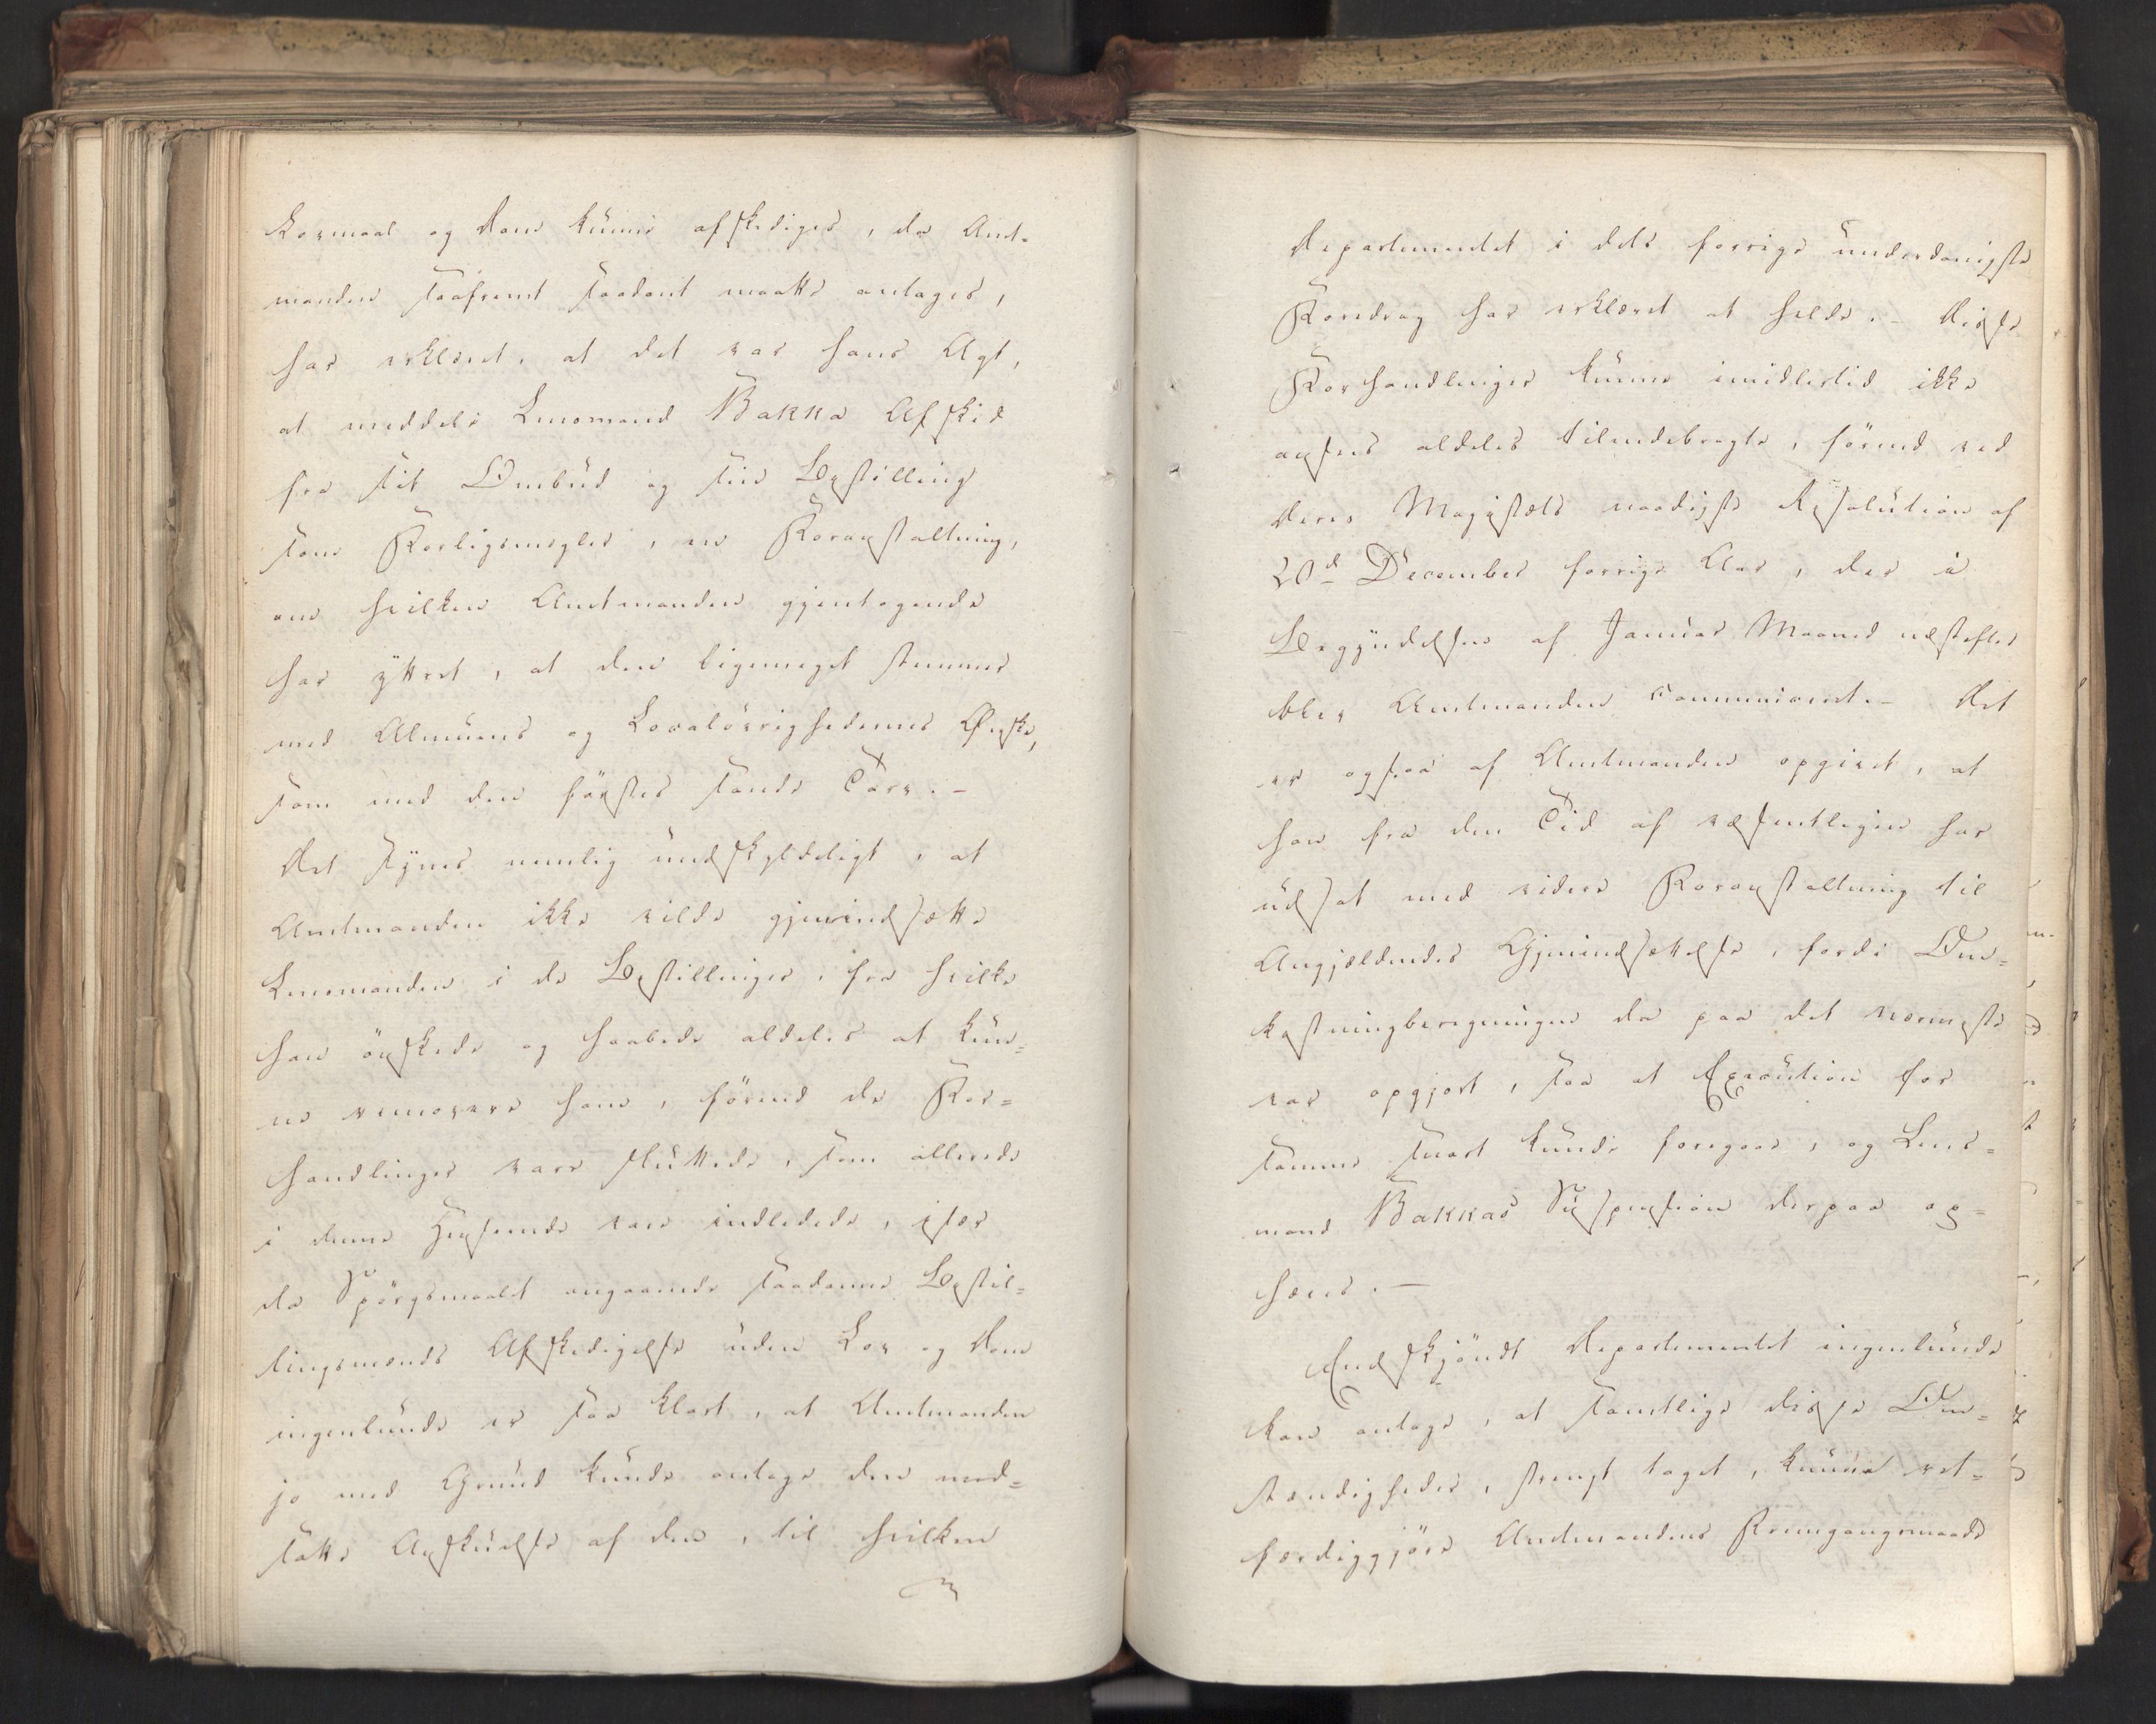 Lovmaal og Dom kunne afskediges, da Amt-
manden saafremt saadant maatte antages,
har erklæret, at det var hans Agt,
at meddele Lensmand Bakka Afsked
fra sit Ombud og sin Bestilling
som Forligsmægler, en Foranstaltning,
om hvilken Amtmanden gjentagende
har yttret, at den ligemeget stemmer
med Almuens og Localövrighedernes Ønske,
som med den förstes sande Tarv.-
Det synes nemlig undskyldeligt, at
Amtmanden ikke vilde gjenindsætte
Lensmanden i de Bestillinger, fra hvilke
han önskede og haabede aldeles at kun=
ne removere ham, förend de For=
handlinger vare sluttede, som allerede
i denne Henseende vare indledede, især
da Spörgsmaalet angaaende saadanne Bestil=
lingsmænds Afskedigelse uden Lov og Dom
ingenlunde er saa klart, at Amtmanden
jo med Grund kunde antage den mod=
satte Anskuelse af den, til hvilken
Departementet i dets forrige underdanigste
Foredrag har erklæret at helde.- Disse
Forhandlinger kunne imidlertid ikke
ansees aldeles tilendebragte, förend ved
Deres Majestæts naadigste Resolution af
20d December forrige Aar, der i
Begyndelsen af Januar Maaned næstefter
blev Amtmanden communiceret.- Det
er ogsaa af Amtmanden opgivet, at
han fra den Tid af væsentligen har
udsat med videre Foranstaltning til
Angjældendes Gjenindsættelse, fordi Om=
kostningberegningen da paa det nærmeste
var opgjort, saa at Execution for
samme snart kunde foregaae, og Lens=
mand Bakkas Suspension derpaa op=
hæves.-
Endskjöndt Departementet ingenlunde
kan antage, at samtlige disse Om=
stændigheder, strengt taget, kunne ret=
færdiggjöre Amtmandens Fremgangsmaade